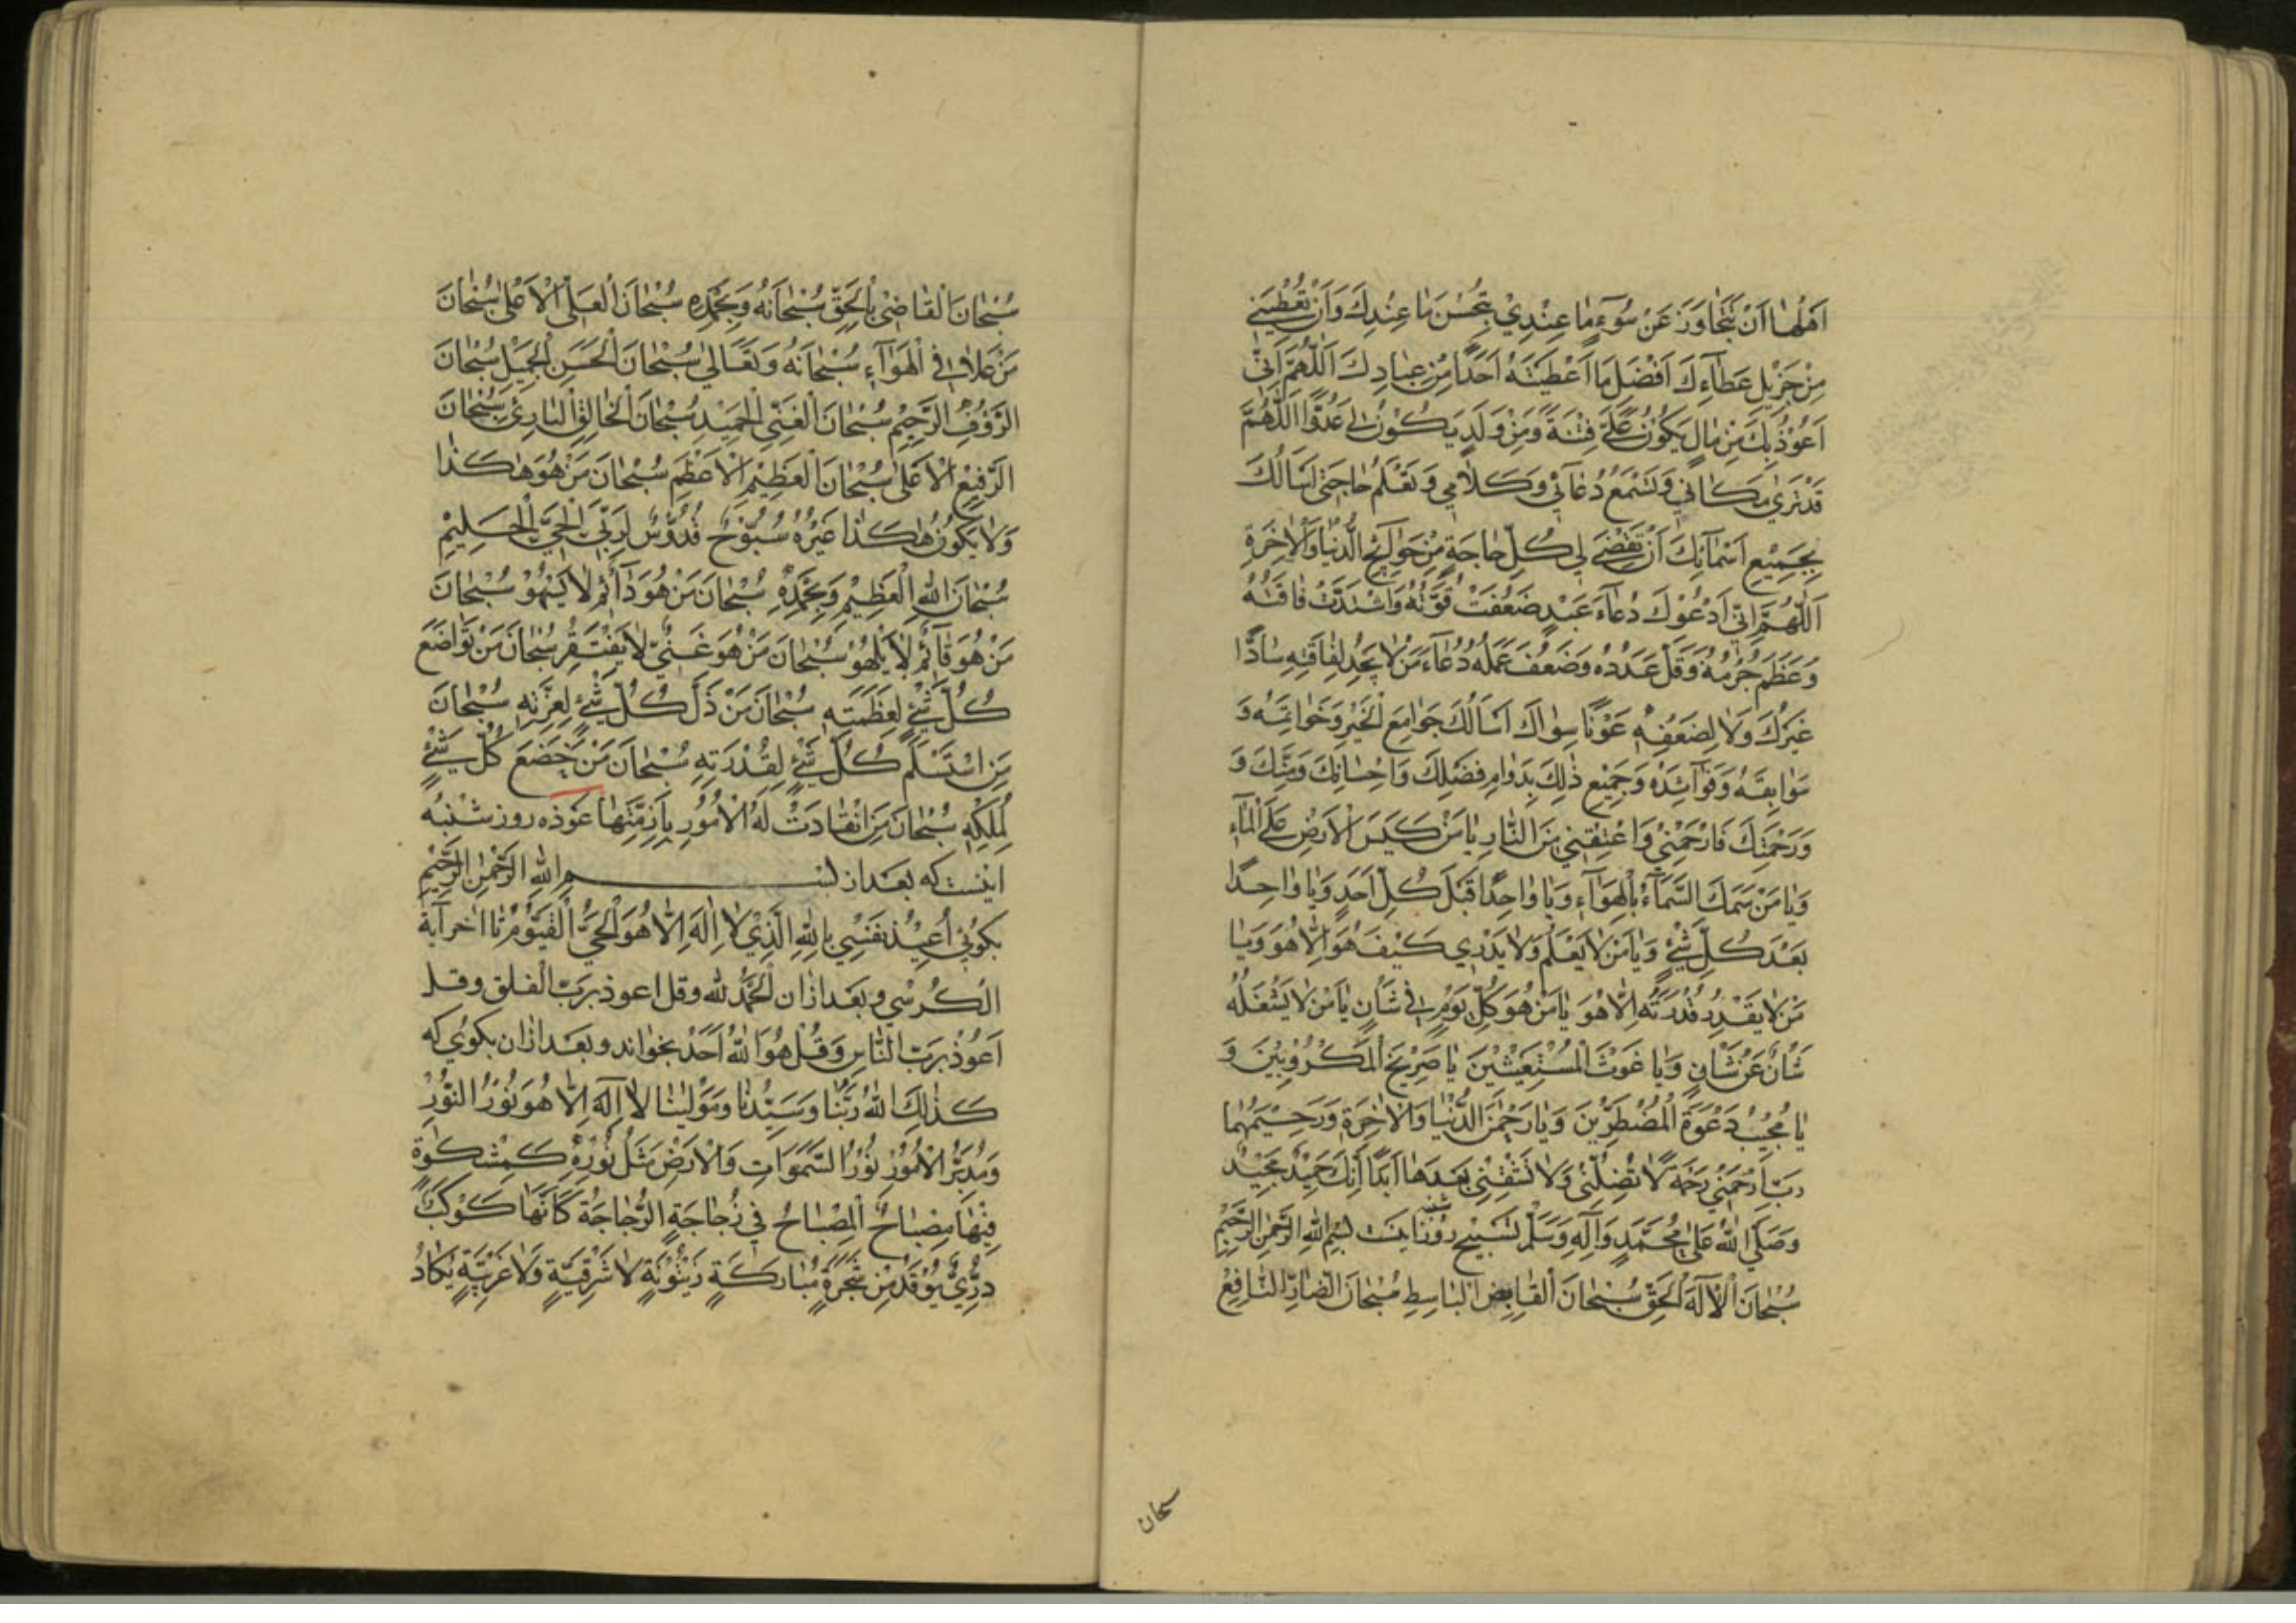 اَهْلُهَا اَنْ تَتَجَاوَزَ عَنْ سُوۤءِ مَا عِنْدِيْ بِحُسْنِ مَا عِنْدِكَ وَاَنْ تُعْطِيَنِيْ
مِنْ جَزِيْلِ عَطَآءِكَ اَفْضَلَ مَا اَعْطَيْتَهُ اَحَدًا مِنْ عِبَادِكَ اَللّٰهُمَّ اِنِّيْ
اَعُوْذُ بِكَ مِنْ مَالٍ يَكُوْنُ عَلَيَّ فِتْنَةً وَمِنْ وَلَدٍ يَكُوْنُ لِيْ عَدُوًّا اَللّٰهُمَّ
قَدْ تَرٰى مَكَانِيْ وَتَسْمَعُ دُعَآئِيْ وَكَلَامِيْ وَتَعْلَمُ حَاجَتِيْ اَسْاَلُكَ
بِجَمِيْعِ اَسْمَآئِكَ اَنْ تَقْضِيَ لِيْ كُلَّ حَاجَةٍ مِنْ حَوَآئِجِ الدُّنْيَا وَالْاٰخِرَةِ
اَللّٰهُمَّ اِنِّيْ اَدْعُوْكَ دُعَآءَ عَبْدٍ ضَعُفَتْ قُوَّتُهُ وَاشْتَدَّتْ فَاقَتُهُ
وَعَظُمَ جُرْمُهُ وَقَلَّ عَدَدُهُ وَضَعُفَ عَمَلُهُ دُعَآءَ مَنْ لَا يَجِدُ لِفَاقَتِهِ سَادًّا
غَيْرَكَ وَلَا لِضَعْفِهٖ عَوْنًا سِوَاكَ اَسْاَلُكَ جَوَامِعَ الْخَيْرِ وَخَوَاتِمَهُ وَ
سَوَابِقَهُ وَفَوَآئِدَهُ وَجَمِيْعِ ذٰلِكَ بِدَوَامِ فَضْلِكَ وَاِحْسَانِكَ وَمَنِّكَ وَ
وَرَحْمَتِكَ فَارْحَمْنِيْ وَاعْتِقْنِيْ مِنَ النَّارِ يَا مَنْ كَبَسَ الْاَرْضَ عَلَى الْمَآءِ
وَيَا مَنْ سَمَكَ السَّمَآءَ بِالْهَوَآءِ وَيَا وَاحِدًا قَبْلَ كُلِّ اَحَدٍ وَيَا وَاحِدًا
بَعْدَ كُلِّ شَيْءٍ وَيَا مَنْ لَا يَعْلَمُ وَلَا يَدْرِيْ كَيْفَ هُوَ اِلَّا هُوَ وَيَا
مَنْ لَا يَقْدِرُ قُدْرَتَهُ اِلَّا هُوَ يَا مَنْ هُوَ كُلَّ يَوْمٍ فِيْ شَاْنٍ يَا مَنْ لَا يَشْغَلُهُ
شَاْنٌ عَنْ شَاْنٍ وَيَا غَوْثَ الْمُسْتَغِيْثِيْنَ يَا صَرِيْخَ الْمَكْرُوْبِيْنَ وَ
يَا مُجِيْبَ دَعْوَةِ الْمُضْطَرِّيْنَ وَيَا رَحْمٰنَ الدُّنْيَا وَالْاٰخِرَةِ وَرَحِيْمَهُمَا
رَبِّ ارْحَمْنِيْ رَحْمَةً لَا تُضِلُّنِيْ وَلَا تُشْقِنِيْ بَعْدَهَا اَبَدًا اِنَّكَ حَمِيْدٌ مَجِيْدٌ
وَصَلَّى اللّٰهُ عَلٰى مُحَمَّدٍ وَاٰلِهِ وَسَلَّمْ تسبيح روز شنبه اينست بِسْمِ اللّٰهِ الرَّحْمٰنِ الرَّحِيْمِ
سُبْحَانَ الْاِلٰهِ الْحَقِّ سُبْحَانَ الْقَابِضِ الْبَاسِطِ سُبْحَانَ الضَّارِّ النَّافِعِ
سبحان
سُبْحَانَ الْقَاضِيْ بِالْحَقِّ سُبْحَانَهُ وَبِحَمْدِهِ سُبْحَانَ الْعَلِيِّ الْاَعْلٰى سُبْحَانَ
مَنْ عَلَا فِي الْهَوَآءِ سُبْحَانَهُ وَتَعَالٰى سُبْحَانَ الْحَسَنِ الْجَمِيْلِ سُبْحَانَ
الرَّؤُوْفِ الرَّحِيْمِ سُبْحَانَ الْغَنِيِّ الْحَمِيْدِ سُبْحَانَ الْخَالِقِ الْبَارِئِ سُبْحَانَ
الرَّفِيْعِ الْاَعْلٰى سُبْحَانَ الْعَظِيْمِ الْاَعْظَمِ سُبْحَانَ مَنْ هُوَ هٰكَذَا
وَلَا يَكُوْنُ هٰكَذَا غَيْرُهُ سُبُّوْحٌ قُدُّوْسٌ لِرَبِّيَ الْحَيِّ الْحَلِيْمِ
سُبْحَانَ اللّٰهِ الْعَظِيْمِ وَبِحَمْدِهِ سُبْحَانَ مَنْ هُوَ دَآئِمٌ لَا يَسْهُوْ سُبْحَانَ
مَنْ هُوَ قَآئِمٌ لَا يَلْهُوْ سُبْحَانَ مَنْ هُوَ غَنِيٌّ لَا يَفْتَقِرُ سُبْحَانَ مَنْ تَوَاضَعَ
كُلُّ شَيْءٍ لِعَظَمَتِهِ سُبْحَانَ مَنْ ذَلَّ كُلُّ شَيْءٍ لِعِزَّتِهِ سُبْحَانَ
مَنِ اسْتَسْلَمَ كُلُّ شَيْءٍ لِقُدْرَتِهِ سُبْحَانَ مَنْ خَضَعَ كُلُّ شَيْءٍ
لِمُلْكِهِ سُبْحَانَ مَنِ انْقَادَتْ لَهُ الْاُمُوْرُ بِاَزِمَّتِهَا عوذه روز شنبه
اينست كه بعد از بِسْمِ اللّٰهِ الرَّحْمٰنِ الرَّحِيْمِ
بكوئى اُعِيْذُ نَفْسِيْ بِاللّٰهِ الَّذِيْ لَا اِلٰهَ اِلَّا هُوَ الْحَيُّ الْقَيُّوْمُ تا اخر آية
الكرسي و بعد ازان الحمد لله و قل اعوذ برب الفلق و قل
اَعُوْذُ بِرَبِّ النَّاسِ وَقُلْ هُوَ اللّٰهُ اَحَدٌ بخواند و بعد ازان بكوئى كه
كَذٰلِكَ اللّٰهُ رَبُّنَا وَسَيِّدُنَا وَمَوْلٰينَا لَا اِلٰهَ اِلَّا هُوَ نُوْرُ النُّوْرِ
وَمُدَبِّرُ الْاُمُوْرِ نُوْرُ السَّمٰوَاتِ وَالْاَرْضِ مَثَلُ نُوْرِهِ كَمِشْكٰوةٍ
فِيْهَا مِصْبَاحٌ الْمِصْبَاحُ فِيْ زُجَاجَةٍ الزُّجَاجَةُ كَاَنَّهَا كَوْكَبٌ
دُرِّيٌّ يُوْقَدُ مِنْ شَجَرَةٍ مُبَارَكَةٍ زَيْتُوْنَةٍ لَا شَرْقِيَّةٍ وَلَا غَرْبِيَّةٍ يَكَادُ